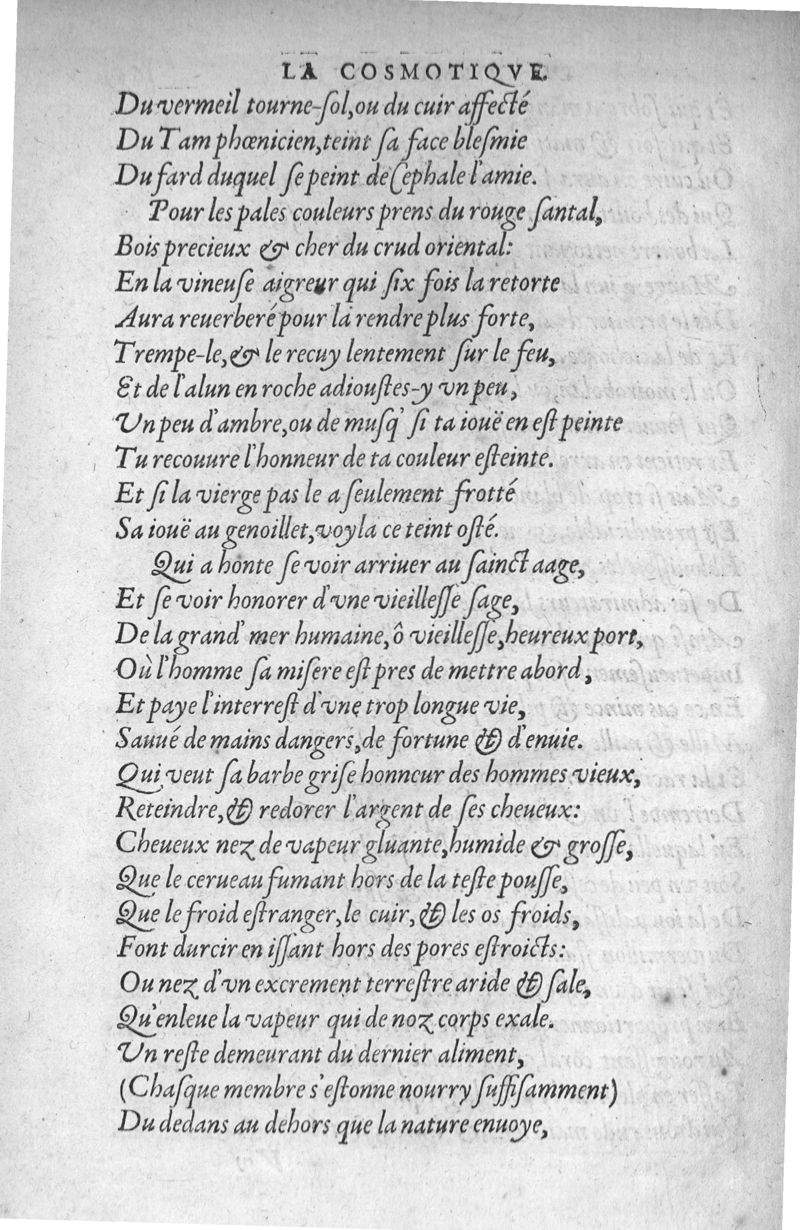 LA COSMOTIQVE.
Du vermeil tourne-ſol, ou du cuir affecté
Du Tam phœnicien, teint ſa face bleſmie
Du fard duquel ſe peint de Cephale l'amie.
Pour les pales couleurs prens du rouge ſantal,
Bois precieux & cher du crud oriental:
En la vineuſe aigreur qui ſix fois la retorte
Aura reuerberé pour la rendre plus forte,
Trempe-le, & le recuy lentement ſur le feu,
Et de l'alun en roche adiouſtes-y vn peu,
Vn peu d'ambre, ou de muſq' ſi ta iouë en eſt peinte
Tu recouure l'honneur de ta couleur eſteinte.
Et ſi la vierge pas le a ſeulement frotté
Sa iouë au genoillet, voyla ce teint oſté.
Qui a honte ſe voir arriuer au ſainct aage,
Et ſe voir honorer d'vne vieilleſſe ſage,
De la grand' mer humaine, ô vieilleſſe, heureux port,
Où l'homme ſa miſere eſt pres de mettre abord,
Et paye l'interreſt d'vne trop longue vie,
Sauué de mains dangers, de fortune & d'enuie.
Qui veut ſa barbe griſe honneur des hommes vieux,
Reteindre, & redorer l'argent de ſes cheueux:
Cheueux nez de vapeur gluante, humide & groſſe,
Que le cerueau fumant hors de la teſte pouſſe,
Que le froid eſtranger, le cuir, & les os froids,
Font durcir en iſſant hors des pores eſtroicts:
Ou nez d'vn excrement terreſtre aride & ſale,
Qu'enleue la vapeur qui de noz corps exale.
Vn reſte demeurant du dernier aliment,
(Chaſque membre s'eſtonne nourry ſuffiſamment)
Du dedans au dehors que la nature enuoye,